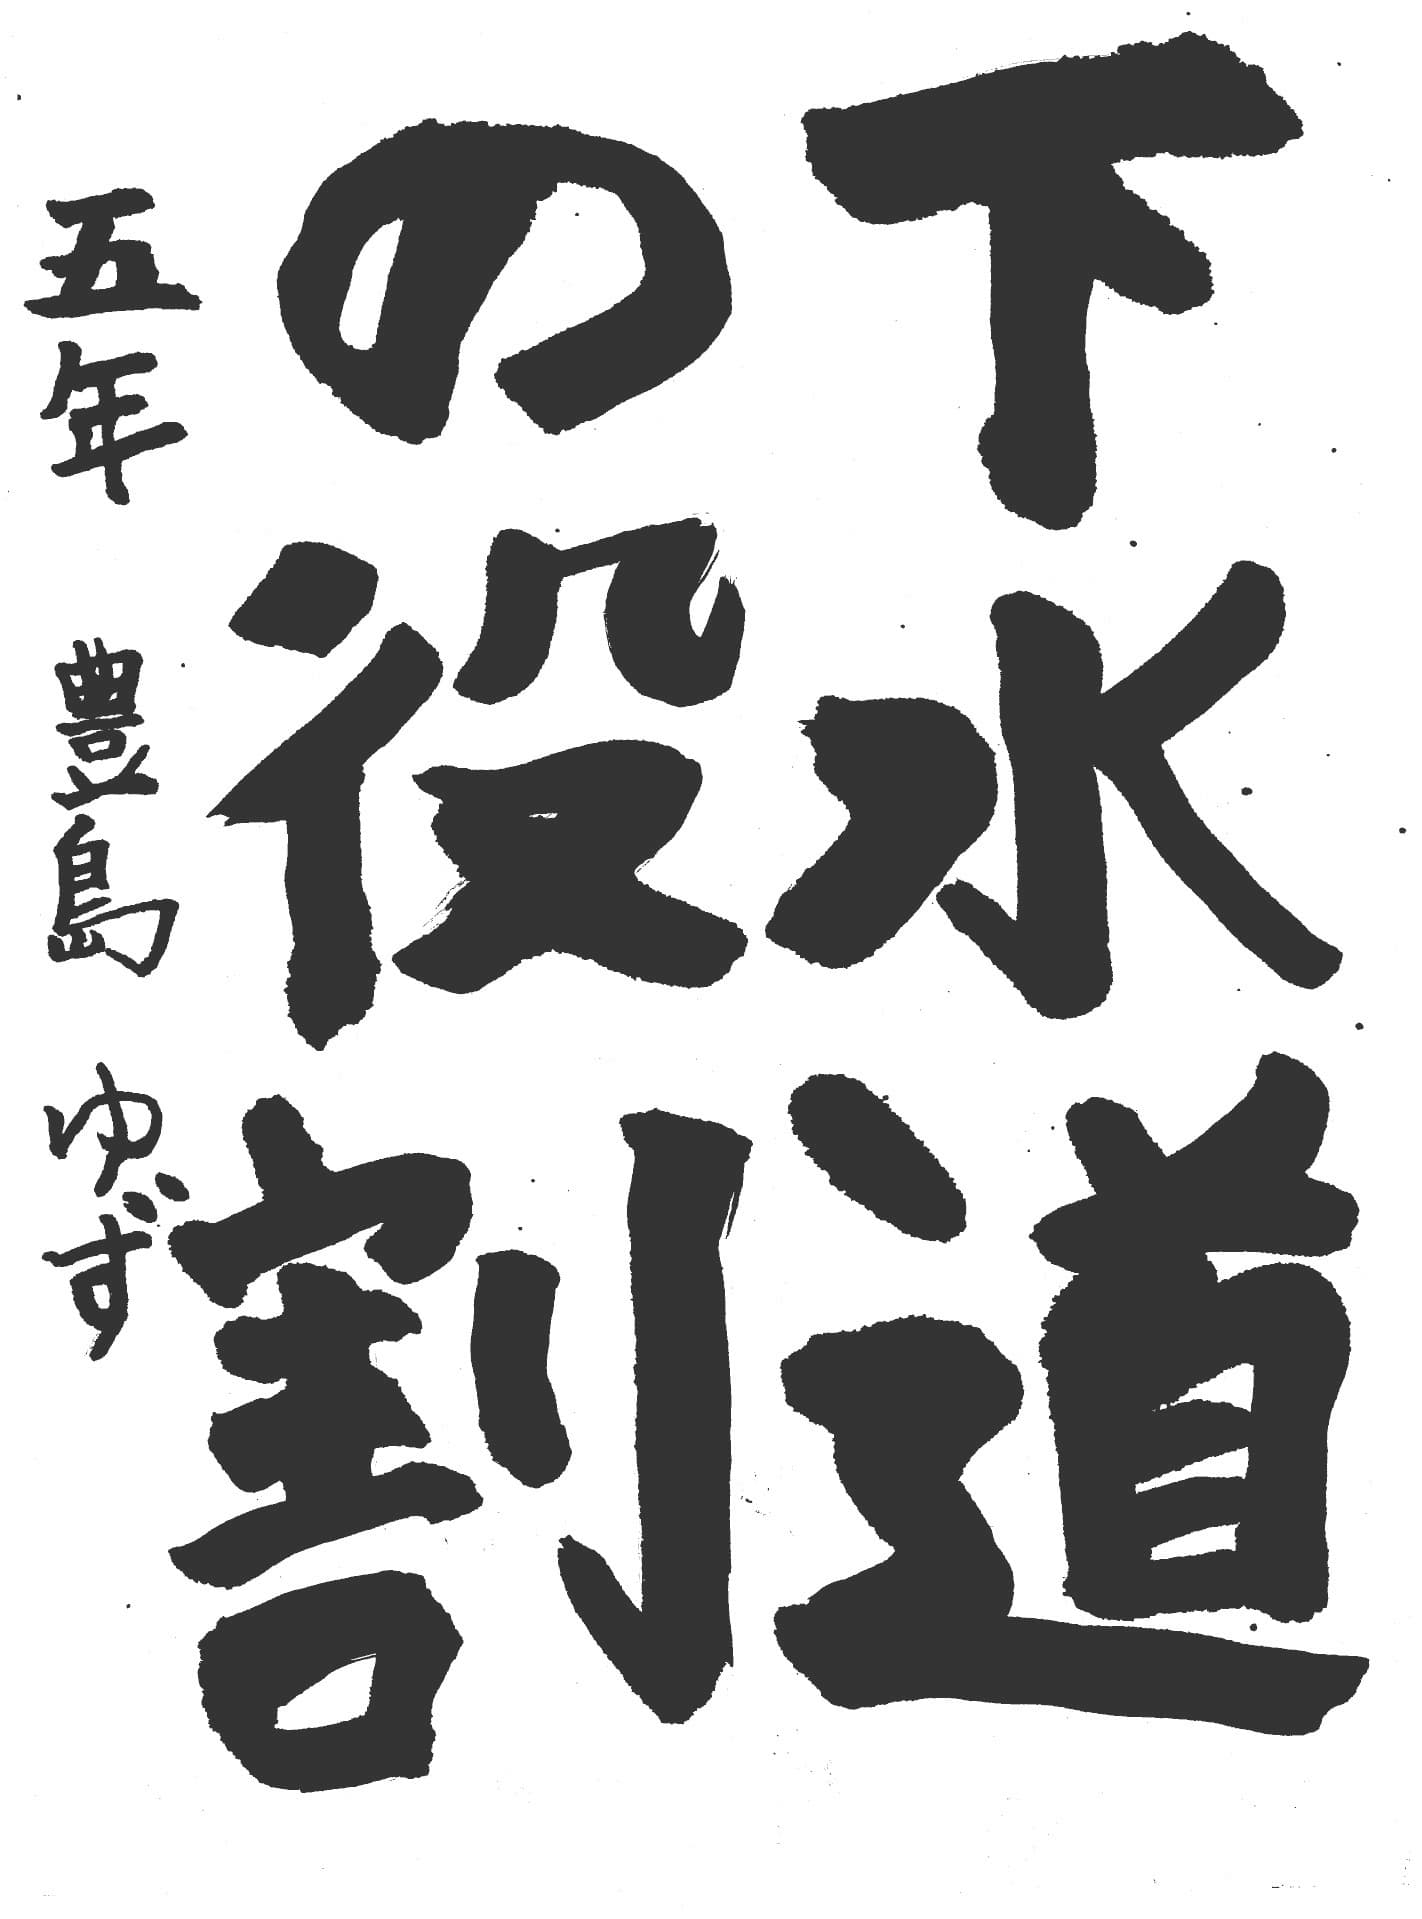 下水道
の役割
五年 豊島 ゆず